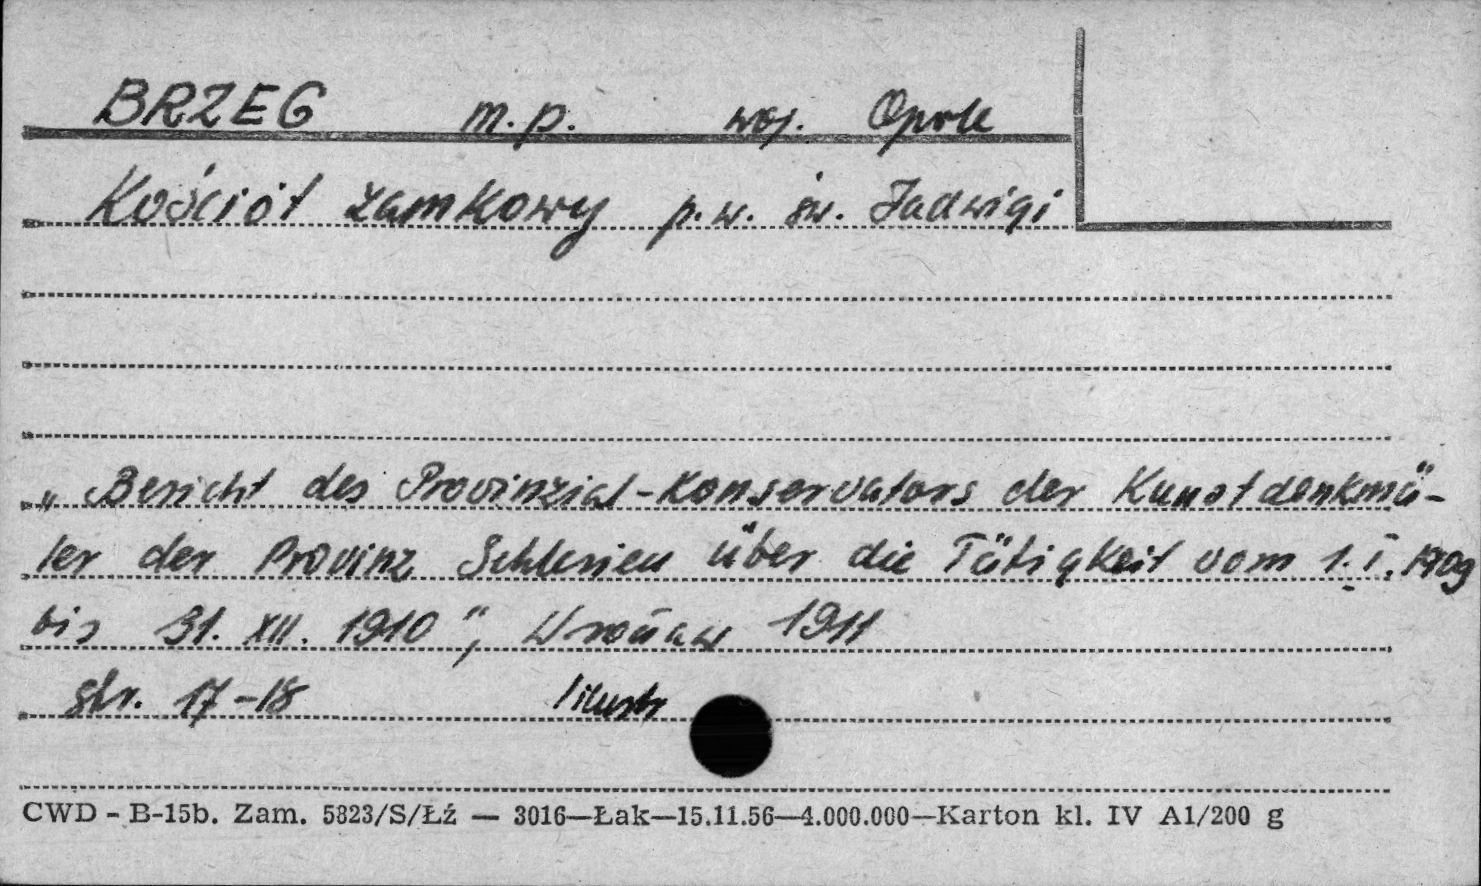 BRZEG m.p. woj. Opole
Kościół zamkowy p.w. św. Jadwigi
„Bericht des Provinzial-Konservators der Kunstdenkmä-
ler der Provinz Schlesien über die Tätigkeit vom 1.I.1909
bis 31. XII. 1910", Wrocław 1911
str. 17-18 1 ilustr
CWD - B-15b. Zam. 5823/S/Łź — 3016—Łak—15.11.56—4.000.000—Karton kl. IV A1/200 g